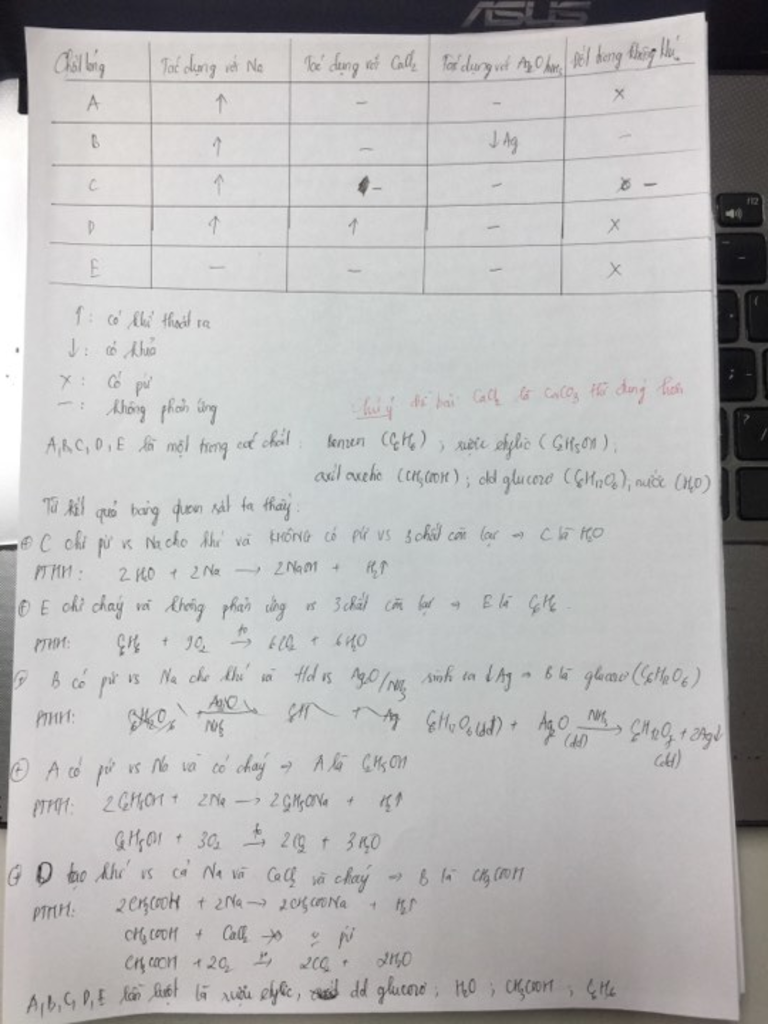 ASUS
Chất lỏng Tác dụng với Na Tác dụng với CaCl2 Tác dụng với Ag2O Đốt trong không khí
A ↑ – – ×
B ↑ – ↓Ag –
C ↑ – – –
D ↑ ↑ – ×
E – – – ×
↑: có khí thoát ra
↓: có
×: Có pư
–: không phản ứng
chú ý đề bài CaCl2 là CaCO3 thì đúng hơn
A, B, C, D, E là một trong các chất: benzen (C6H6); rượu etylic (C2H5OH);
axit axetic (CH3COOH); dd glucozơ (C6H12O6); nước (H2O)
Từ kết quả bảng quan sát ta thấy:
+ C chỉ pư vs Na cho khí và KHÔNG có pư vs 3 chất còn lại → C là H2O
PTHH: 2H2O + 2Na → 2NaOH + H2↑
+ E chỉ cháy và không phản ứng vs 3 chất còn lại → E là C6H6.
PTHH: C6H6 + 9O2 →(to) 6CO2 + 6H2O
+ B có pư vs Na cho khí và Ag2O/NH3 sinh ra ↓Ag → B là glucozơ (C6H12O6)
PTHH: C6H12O6 (dd) + Ag2O (dd) →(NH3) C6H12O7 (dd) + 2Ag↓
+ A có pư vs Na và có cháy → A là C2H5OH
PTHH: 2C2H5OH + 2Na → 2C2H5ONa + H2↑
C2H5OH + 3O2 →(to) 2CO2 + 3H2O
+ D tạo khí vs cả Na và CaCl2 và cháy → B là CH3COOH
PTHH: 2CH3COOH + 2Na → 2CH3COONa + H2↑
CH3COOH + CaCl2 → pư
CH3COOH + 2O2 →(to) 2CO2 + 2H2O
A, B, C, D, E lần lượt là rượu etylic, dd glucozơ; H2O; CH3COOH; C6H6